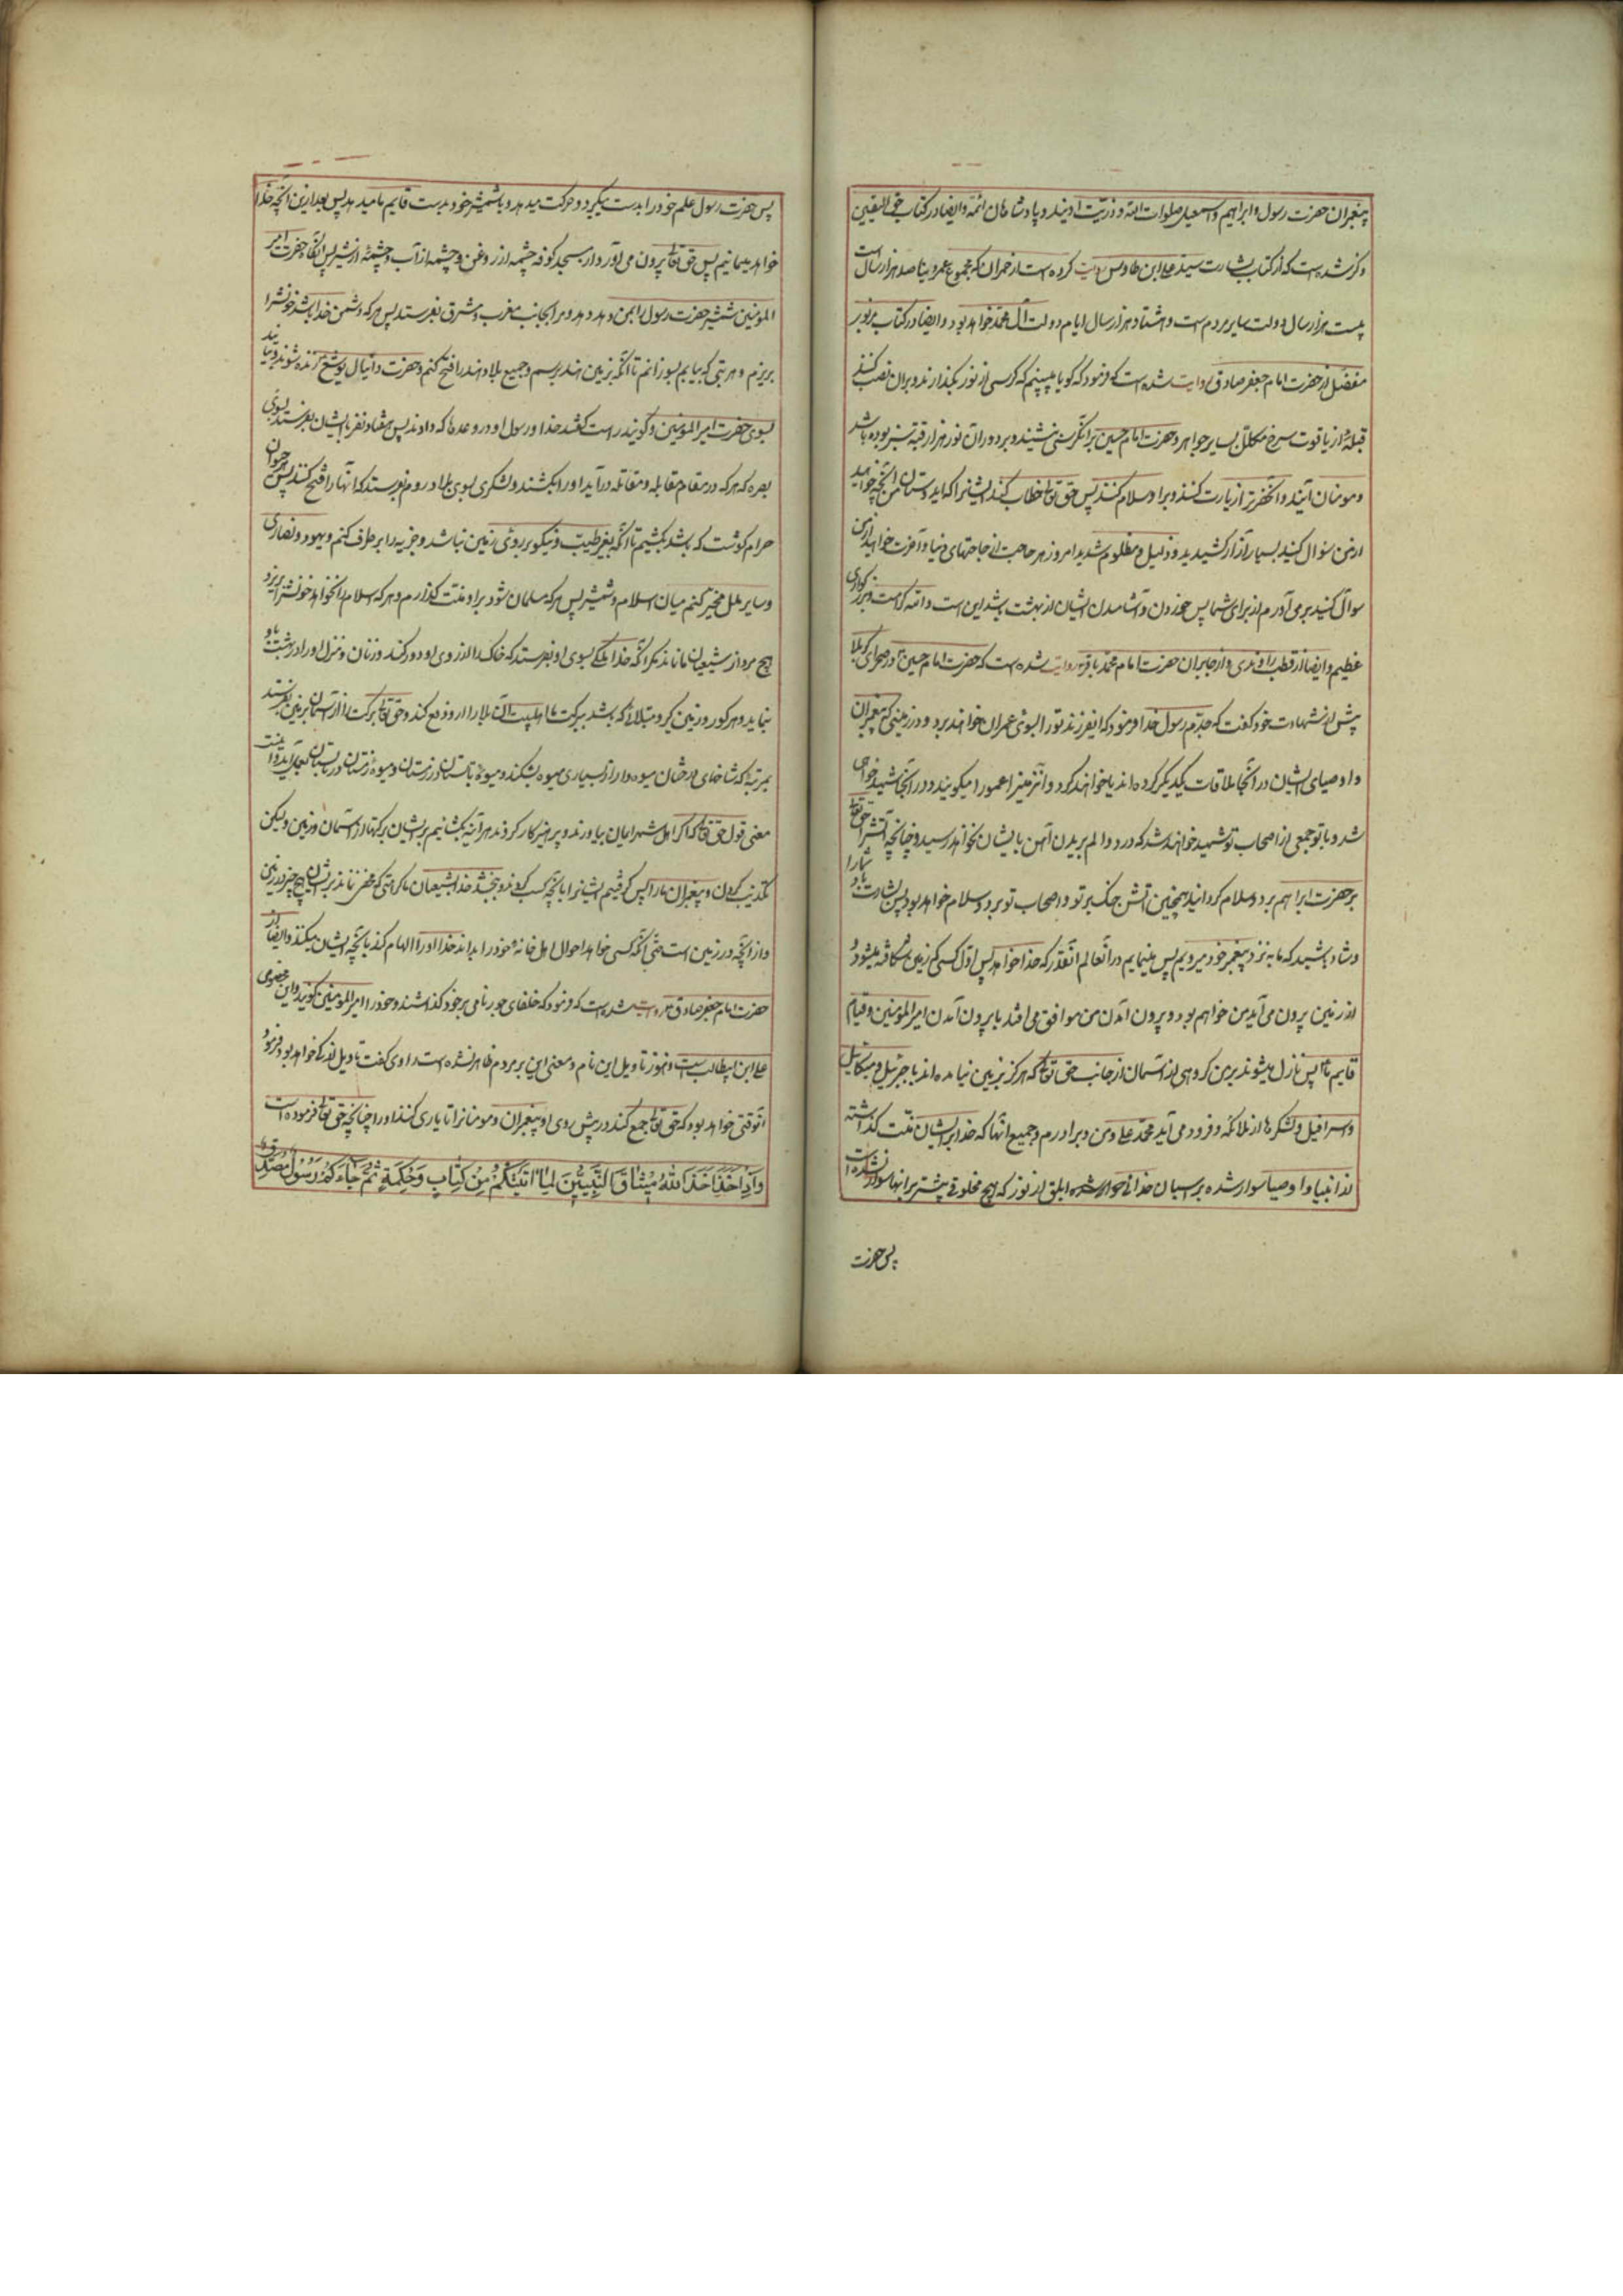 پیغمبران حضرت رسول و ابراهیم و اسمعیل صلوات الله و ذریت اویند و پادشاهان ائمه و ایضا در کتاب حق الیقین
ذکر شده است که از کتاب بشارت سید علی ابن طاوس روایت کرده است از حمران که مجموع عمر دنیا صد هزار سال است
بیست هزار سال دولت سایر مردم است و هشتاد هزار سال ایام دولت آل محمد خواهد بود و ایضا در کتاب مزبور
مفضل از حضرت امام جعفر صادق روایت شده است که فرمود که گویا میبینم که کرسی از نور بگذارند و بر آن نصب کنند
قبهٔ از یاقوت سرخ مکلل بسایر جواهر و حضرت امام حسین بر آن کرسی نشیند و بر دور آن نود هزار قبه سبز بوده باشد
و مومنان آیند و آنحضرترا زیارت کنند و بر او سلام کنند پس حق تعالی خطاب کند ایشانرا که ای دوستان من آنچه خواهید
از من سؤال کنید بسیار آزار کشیدید و ذلیل و مظلوم شدید امروز هر حاجت از حاجتهای دنیا و آخرت خواهید از من
سوال کنید بر می آورم از برای شما پس خوردن و آشامیدن ایشان از بهشت باشد این است والله کرامت و بزرگواری
عظیم و ایضا از قطب راوندی و از جابر از حضرت امام محمد باقر روایت شده است که حضرت امام حسین در صحرای کربلا
پیش از شهادت خود گفت که جدم رسول خدا فرمود که ایفرزند تو را بسوی عمران خواهند برد و در زمینی که پیغمبران
و اوصیای ایشان در آنجا ملاقات یکدیگر کرده اند یا خواهند کرد و آنزمین را عمورا میگویند و در آنجا شهید خواهی
شد و با تو جمعی از اصحاب تو شهید خواهند شد که درد و الم بریدن آهن بایشان نخواهد رسید و چنانچه آتشرا حق تعالی
بر حضرت ابراهیم برد و سلام گردانید همچنین آتش جنگ بر تو و اصحاب تو برد و سلام خواهد بود پس بشارت باد شما را
و شاد باشید که ما به نزد پیغمبر خود میرویم پس میمانیم در آنعالم آنقدر که خدا خواهد پس اول کسی که زمین شکافته میشود و
از زمین بیرون می آید من خواهم بود و بیرون آمدن من موافق می افتد با بیرون آمدن امیرالمومنین و قیام
قایم ما پس نازل میشوند بر من گروهی از آسمان از جانب حق تعالی که هرگز بزمین نیامده اند با جبرئیل و میکائیل
و اسرافیل و لشکرها از ملائکه و فرود می آید محمد و علی و من و برادرم و جمیع آنها که خدا بر ایشان منت گذاشته
از انبیا و اوصیا سوار شده بر اسبان خدائی ابلق از نور که هیچ مخلوقی پیشتر بر آنها سوار نشده است
پس حضرت
پس حضرت رسول علم خود را بدست بگیرد و حرکت میدهد و با شمشیر خود بدست قایم ما میدهد پس بعد ازین آنچه خدا
خواهد میمانیم پس حق تعالی بیرون می آورد از مسجد کوفه چشمه از روغن و چشمه از آب و چشمهٔ از شیر پس آنگاه حضرت امیر
المومنین شمشیر حضرت رسول را بمن دهد و مرا بجانب مغرب و مشرق بفرستد پس هر که دشمن خدا باشد خونشرا
بریزم و هر بتی که بیابم بسوزانم تا آنکه بزمین هند برسم و جمیع بلاد هند را فتح کنم و حضرت دانیال و یوشع زنده شوند و بیایند
بسوی حضرت امیر المومنین و گویند راست گفتند خدا و رسول او در وعده ها که دادند پس هفتاد نفر با ایشان بفرستد بسوی
بصره که هر که در مقام مقابله و مقاتله درآید او را بکشند و لشکری بسوی بلاد روم بفرستد که آنها را فتح کنند پس هر حیوان
حرام گوشت که باشد بکشیم تا آنکه بغیر طیب و نیکو بر روی زمین نباشد و جزیه را بر طرف کنم و یهود و نصاری
و سایر ملل مخیر کنم میان اسلام و شمشیر پس هر که مسلمان شود بر او منت گذارم و هر که اسلام را نخواهد خونشرا بریزد
هیچ مردی از شیعیان ما نماند مگر آنکه خدا ملکی بسوی او بفرستد که خاک را از روی او دور کند و زنان و منزل او را در بهشت باو
بنماید و هر کور و زمین گیر و مبتلائی که باشد ببرکت ما اهلبیت آن بلا را از او دفع کند و حق تعالی برکت را از آسمان بزمین بفرستد
بمرتبهٔ که شاخهای درختان میوه دار از بسیاری میوه بشکند و میوهٔ تابستان در زمستان و میوهٔ زمستان در تابستان بعمل آید و اینست
معنی قول حق تعالی که اگر اهل شهرها ایمان بیاورند و پرهیزکار گردند هر آینه بگشائیم بر ایشان برکتها از آسمان و زمین و لیکن
تکذیب کردن پیغمبران ما را پس گرفتیم ایشانرا بآنچه کسب کردند و ببخشد خدا بشیعیان ما کرامتی که مخفی نماند بر ایشان هیچ چیز در زمین
و از آنچه در زمین است حتی آنکه کسی خواهد احوال اهل خانهٔ خود را بداند خدا او را الهام کند بآنچه ایشان میکنند و ایضا از
حضرت امام جعفر صادق روایت شده است که فرمود که خلفای جور نامی بر خود گذاشتند و خود را امیر المومنین گویند و این مخصوص
علی ابن ابیطالب است و هنوز تاویل این نام و معنی این بر مردم ظاهر نشده است راوی گفت تاویل آن کی خواهد بود فرمود
آنوقتی خواهد بود که حق تعالی جمع کند در پیش روی او پیغمبران و مومنانرا تا یاری کنند او را چنانچه حق تعالی فرموده است
وَاِذَا اَخَذَ اَللهُ مِیثٰاقَ النَّبِیّینَ لَمٰا اٰتَیْتُکُمْ مِنْ کِتٰابٍ وَحِکْمَةٍ ثُمَّ جٰاءَکُمْ رَسُولٌ مُصَدِّقٌ